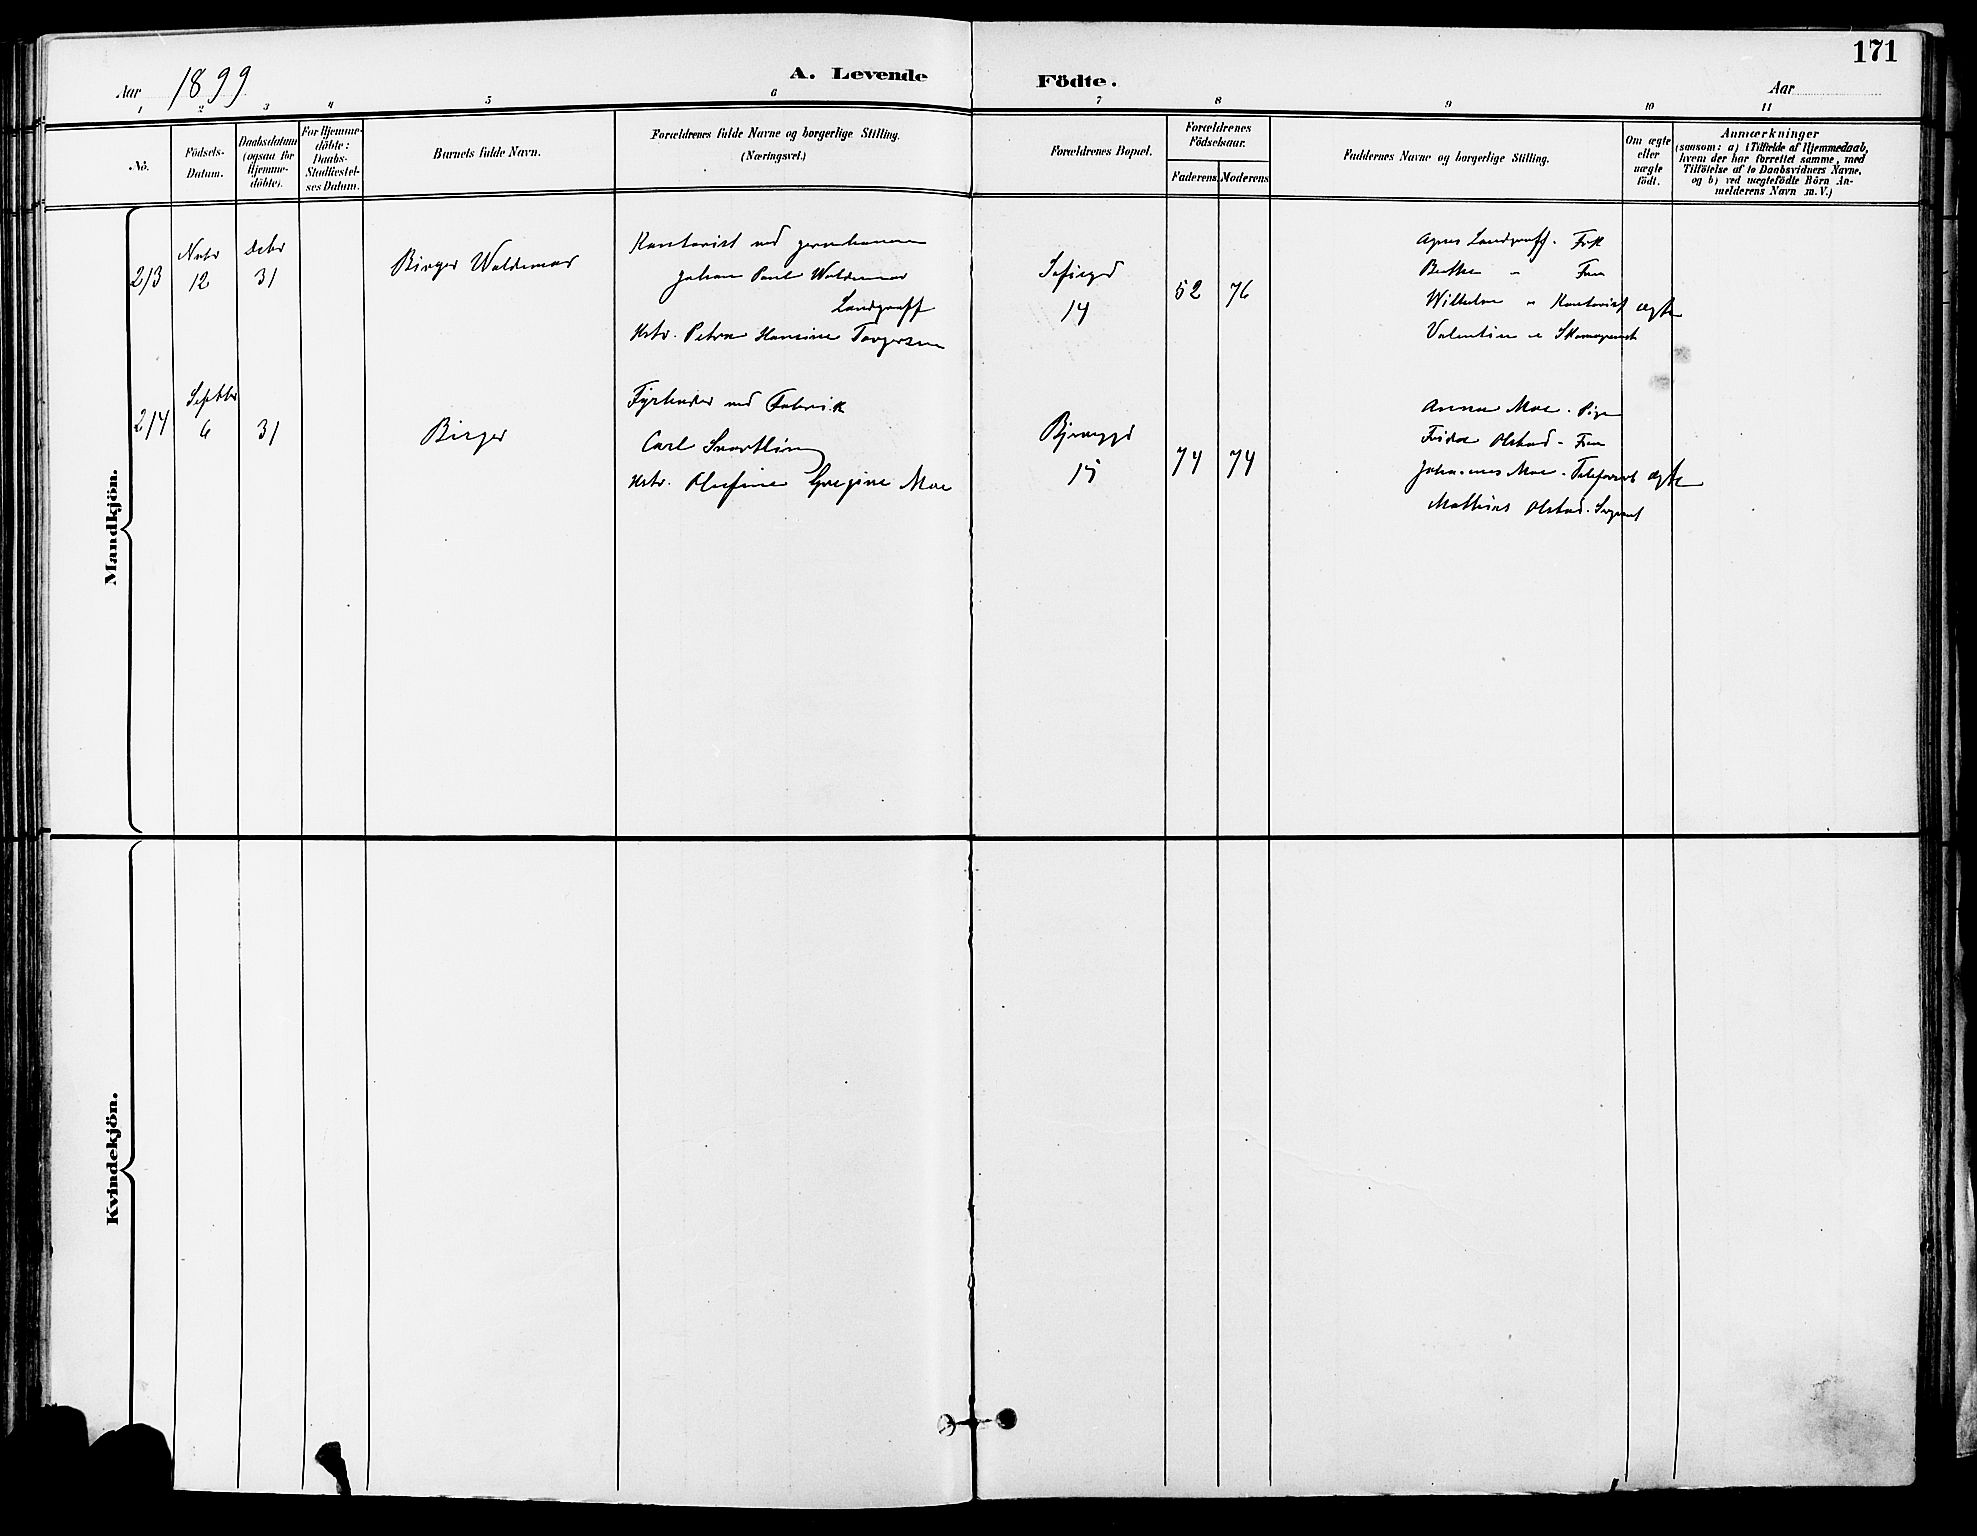 171
Aar 1899
A. Levende Födte.
Aar
1 2 3 4 5 6 7 8 9 10 11
Nö.
Födsels-
Datum.
Daabsdatum
(ogsaa for
Hjemme-
döbte).
For Hjemme-
döbte:
Daabs-
Stadfæstel-
ses Datum.
Barnets fulde Navn.
Forældrenes fulde Navne og borgerlige Stilling.
(Næringsvei.)
Forældrenes Bopæl.
Forældrenes
Födselsaar.
Faderens Moderens
Faddernes Navne og borgerlige Stilling.
Om ægte
eller
uægte
födt.
Anmærkninger
(saasom: a) i Tilfælde af Hjemmedaab,
hvem der har forrettet samme, med
Tilföielse af to Daabsvidners Navne,
og b) ved uægtefödte Börn An-
melderens Navn m. V.)
Mandkjön.
213
Novbr
12
Decbr
31
Birger Waldemar
Kontorist ved jernbanen
Johan Paul Waldemar
Landgraff
Hstr. Petra Hansine Torgersen
Sofiegd
14
52 76
Agnes Landgraff. Frk
Berthe " Frue
Wilhelm " Kontorist
Valentin "
ægte
214
Septbr
6
31
Birger
Fyrböder ved Fabrik
Carl Svartling
Hstr. Olufine Gregine Moe
15
74 74
Anna Moe. Pige
Frida Olstad - Frue
Johannes Moe -
Mathias Olstad. Sergeant
ægte
Kvindekjön.